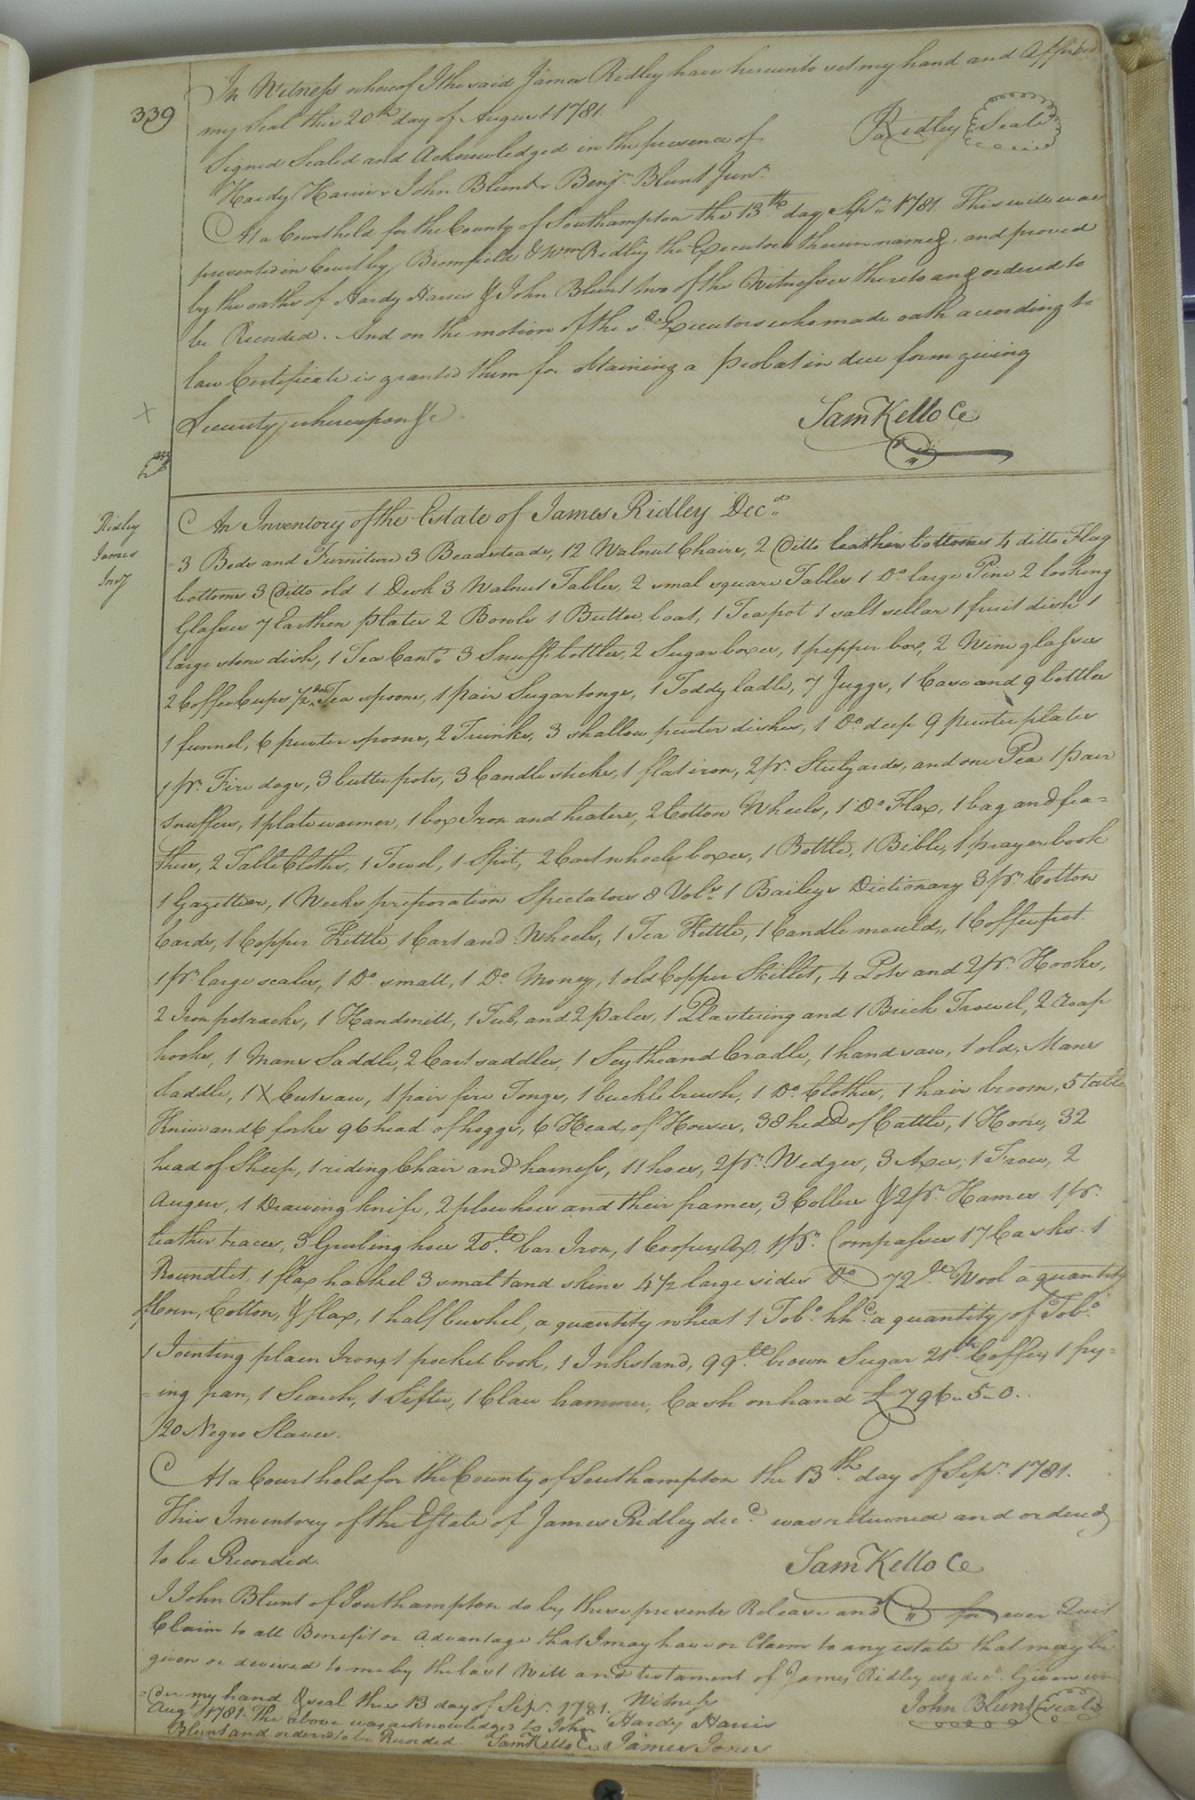 339
In Witness whereof I the said James Ridley have hereunto set my hand and Affixed
my seal this 20th day of August 1781.
Ja Ridley Seal
Signed Sealed and Acknowledged in the presence of
Hardy Harris John Blunt Benjn Blunt Junr.
At a Court held for the County of Southampton the 13th day Sepr. 1781. This will was
presented in Court by Bromfield & Wm Ridley the Executors therein named, and proved
by the oaths of Hardy Harris & John Blunt two of the Witnesses thereto and ordered to
be Recorded. And on the motion of the sd. Executors who made oath according to
law Certificate is granted them for obtaining a Probat in due form giving
Security, whereupon &c.
Sam Kello Cc
Ridley
James
Invy
An Inventory of the Estate of James Ridley Decd.
3 Beds and Furniture 3 Beadsteads, 12 Walnut Chairs, 2 Ditto leather bottoms 4 ditto Flag
bottoms 3 Ditto old 1 Desk 3 Walnut Tables, 2 smal square Tables 1 Do. large Pine 2 looking
Glasses 7 Earthen plates 2 Bowls 1 Butter boat, 1 Teapot 1 salt sellar 1 fruit dish 1
large stone dish, 1 Tea Canr. 3 Snuff bottles, 2 Sugar boxes, 1 pepper box, 2 Wine glasses
2 Coffee Cups 1/2 doz Tea spoons, 1 pair Sugar tongs, 1 Toddy ladle, 7 Juggs, 1 Case and 9 bottles
1 funnel, 6 pewter spoons, 2 Trunks, 3 shallow pewter dishes, 1 Do deep 9 pewter plates
1 pr. Fire dogs, 3 butter pots, 3 Candlesticks, 1 flat iron, 2 pr. Stilyards, and one Pea 1 pair
snuffers, 1 plate warmer, 1 box Iron and heaters, 2 Cotton Wheels, 1 Do Flax, 1 bag and fea=
thers, 2 Table Cloths, 1 Towel, 1 Spit, 2 Cart wheels boxes, 1 Bottle, 1 Bible, 1 prayer book
1 Gazetteer, 1 Weeks preparation Spectators 8 Vols. 1 Baileys Dictionary 3 pr. Cotton
Cards, 1 Copper Kettle, 1 Cart and Wheels, 1 Tea Kettle, 1 Candle mould, 1 Coffee pot.
1 pr. large scales, 1 Do small, 1 Do. Money, 1 old Copper Skillet, 4 Pots and 2 pr. Hooks,
2 Iron potracks, 1 Handmill, 1 Tub, and 2 pales, 1 Plastering and 1 Brick Trowel, 2 reap
hooks, 1 Mans Saddle, 2 Cart saddles, 1 Scythe and Cradle, 1 hand saw, 1 old Mans
saddle, 1 X Cut saw, 1 pair fire Tongs, 1 buckle brush, 1 Do. Clothes, 1 hair broom, 5 table
Knives and 6 forks 96 head of hoggs, 6 Head of Horses, 38 head of Cattle, 1 Hone, 32
head of Sheep, 1 riding Chair and harness, 11 hoes, 2 pr. Wedges, 3 Axes, 1 Frow, 2
Augers, 1 Drawing knife, 2 plow hoes and their frames, 3 Collers & 2 pr. Hames 1 pr.
leather traces, 3 Grubing hoes 20 lb. bar Iron, 1 Coopers Ax 1 pr. Compasses 17 Casks 1
Roundlet, 1 flax hackel 3 small tand skins 4 1/2 large sides Do 72 lb Wool a quantity
of Corn, Cotton, & flax, 1 half bushel, a quantity wheat 1 Tobo. hhd. a quantity of Tobo.
1 Jointing plain Irons, 1 pocket book, 1 Inkstand, 99 lb brown Sugar 21 lb Coffee, 1 fry=
=ing pan, 1 Search, 1 Sifter, 1 Claw hammer, Cash on hand £796..5..0.
20 Negro Slaves.
At a Court held for the County of Southampton the 13th day of Sepr. 1781.
This Inventory of the Estate of James Ridley decd. was returned and ordered
to be Recorded.
Sam Kello Cc
I John Blunt of Southampton do by these presents Release and for ever Quit
Claim to all Benefit or Advantage that I may have or Claim to any estate that may be
given or devised to me by the last Will and testament of James Ridley decd. Given un
=der my hand & seal this 13 day of Sepr. 1781.
Witness
John Blunt Seal
Aug 1781. The above was acknowledged to John
Hardy Harris
Blunt and ordered to be Recorded. Sam Kello Cc
James Jones